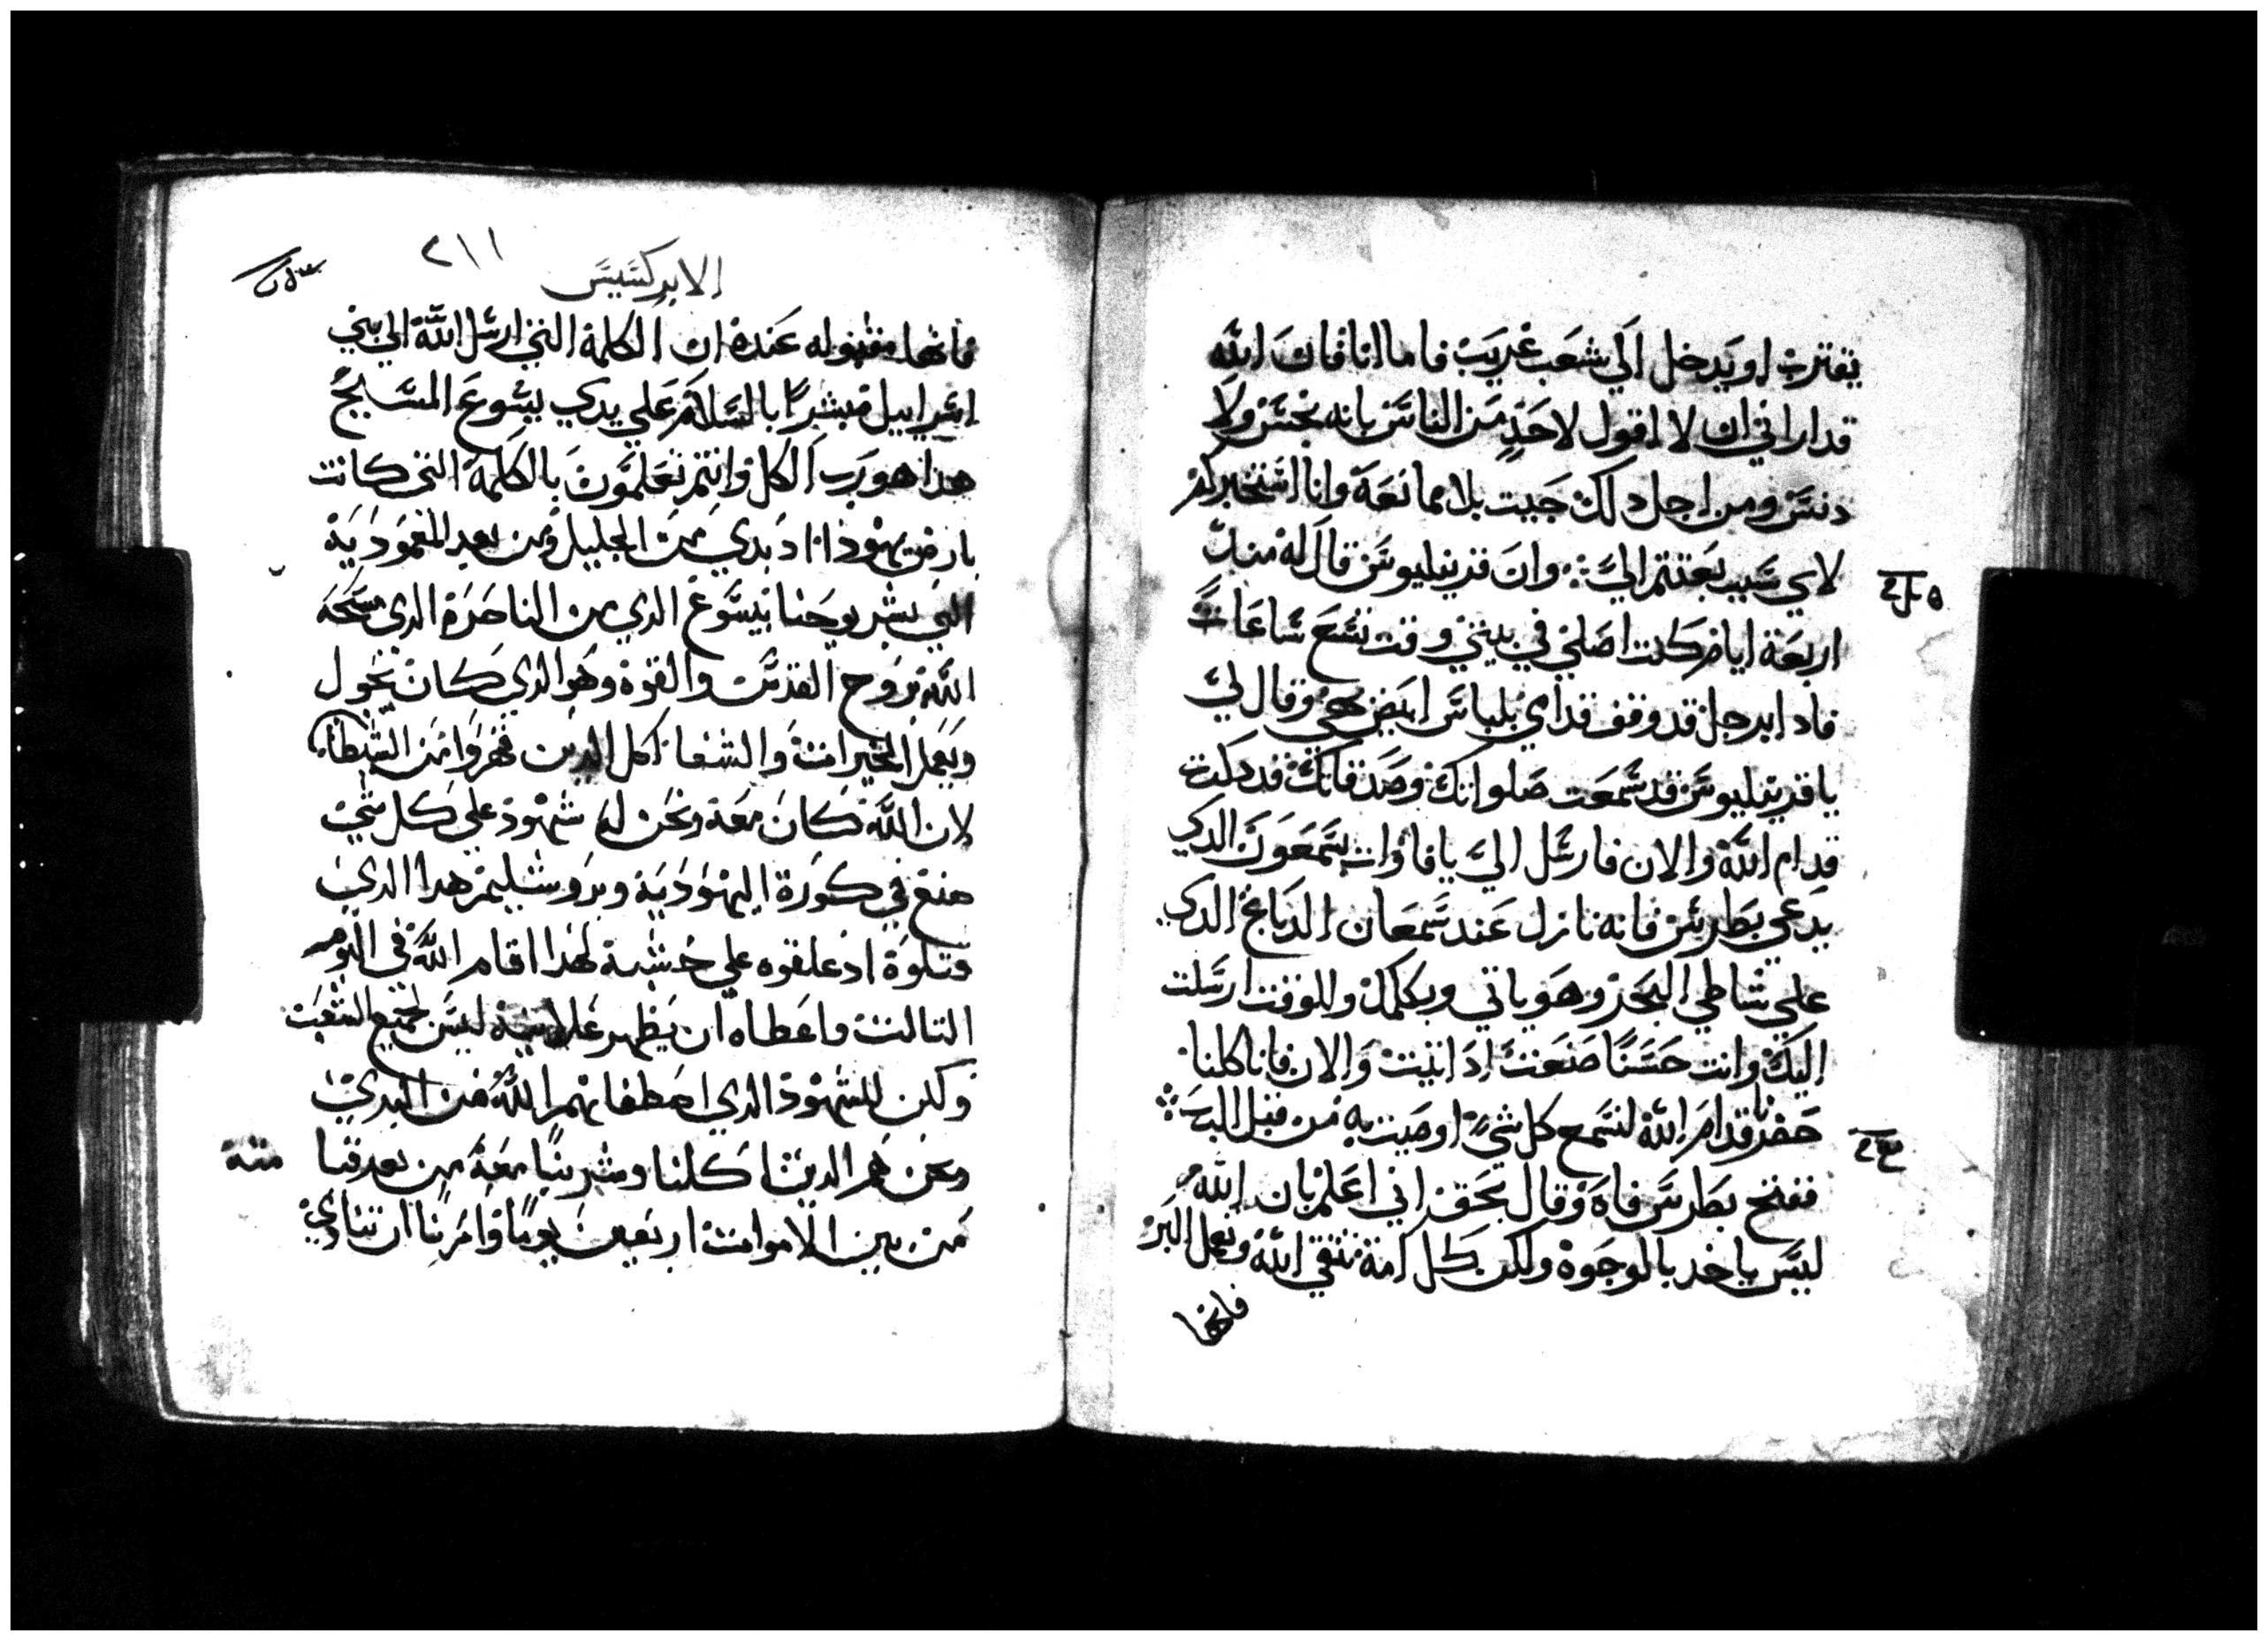 يقترب او يدخل الي شعب غريب فاما انا فان الله
قد اراني ان لا اقول لاحد من الناس بانه نجس ولا
دنس ومن اجل دلك جيت بلا ممانعة وانا استخبركم
لاي سبب بعتتم الي وان قرنيليوس قال له مند
اربعة ايام كنت اصلي في بيتي وقت تسع ساعات
فادا برجل قد وقف قدامي بلباس ابيض بهي وقال لي
يا قرنيليوس قد سمعت صلواتك وصدقاتك قد دكرت
قدام الله والان فارسل الي يافا وات بسمعون الدي
يدعي بطرس فانه نازل عند سمعان الدباغ الدي
علي شاطي البحر وهو ياتي ويكلمك وللوقت ارسلت
اليك وانت حسنا صنعت اد اتيت والان فانا كلنا
حضرنا قدام الله لنسمع كل شي اوصيت به من قبل الرب
ففتح بطرس فاه وقال بحق اني اعلم بان الله
ليس ياخد بالوجوه ولكن كل امة تتقي الله وتعمل البر
فانها
الابركسيس
٢١١
فانها مقبوله عنده ان الكلمة التي ارسل الله الي بني
اسراييل مبشرا بالسلام علي يدي يسوع المسيح
هدا هو رب الكل وانتم تعلمون بالكلمة التي كانت
بارض يهودا اد بدي من الجليل ومن بعد المعمودية
التي بشر يوحنا بيسوع الدي من الناصرة الدي مسحه
الله بروح القدس والقوة وهو الدي كان يجول
ويعمل الخيرات والشفا لكل الدين قهروا من الشيطان
لان الله كان معه ونحن له شهود علي كل شي
صنع في كورة اليهودية ويروشليم هدا الدي
قتلوه اد علقوه علي خشبة لهدا اقام الله في اليوم
التالت واعطاه ان يظهر علانية ليس لجميع الشعب
ولكن للشهود الدي اصطفاهم الله من البدي
ونحن هم الدين اكلنا وشربنا معه من بعد قيا
مته
من بين الاموات اربعين يوما وامرنا ان ننادي